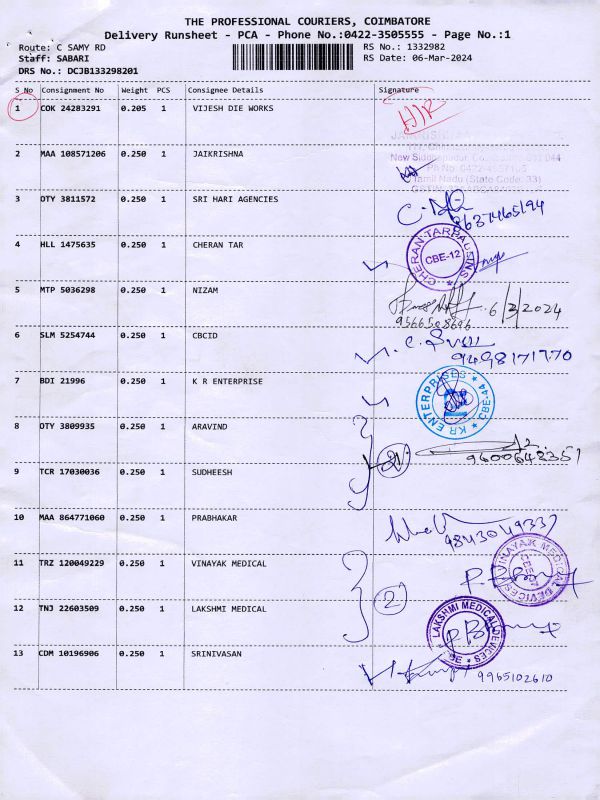 THE PROFESSIONAL COURIERS, COIMBATORE
Delivery Runsheet - PCA - Phone No.:0422-3505555 - Page No.:1
Route: C SAMY RD RS No.: 1332982
Staff: SABARI RS Date: 06-Mar-2024
DRS No.: DCJB133298201
S No Consignment No Weight PCS Consignee Details Signature
1 COK 24283291 0.205 1 VIJESH DIE WORKS
2 MAA 108571206 0.250 1 JAIKRISHNA
New Siddhapudur
Tamil Nadu (State Code: 33)
3 OTY 3811572 0.250 1 SRI HARI AGENCIES
8637465194
4 HLL 1475635 0.250 1 CHERAN TAR
CHERAN TARPAULINS CBE-12
5 MTP 5036298 0.250 1 NIZAM
6/3/2024
9566508696
6 SLM 5254744 0.250 1 CBCID
9498171770
7 BDI 21996 0.250 1 K R ENTERPRISE
KR ENTERPRISES CBE-44
8 OTY 3809935 0.250 1 ARAVIND
2
9600648351
9 TCR 17030036 0.250 1 SUDHEESH
10 MAA 864771060 0.250 1 PRABHAKAR
9843049337
11 TRZ 120049229 0.250 1 VINAYAK MEDICAL
VINAYAK MEDICAL DEVICES
2
12 TNJ 22603509 0.250 1 LAKSHMI MEDICAL
LAKSHMI MEDICAL DEVICES
13 CDM 10196906 0.250 1 SRINIVASAN
9965102610